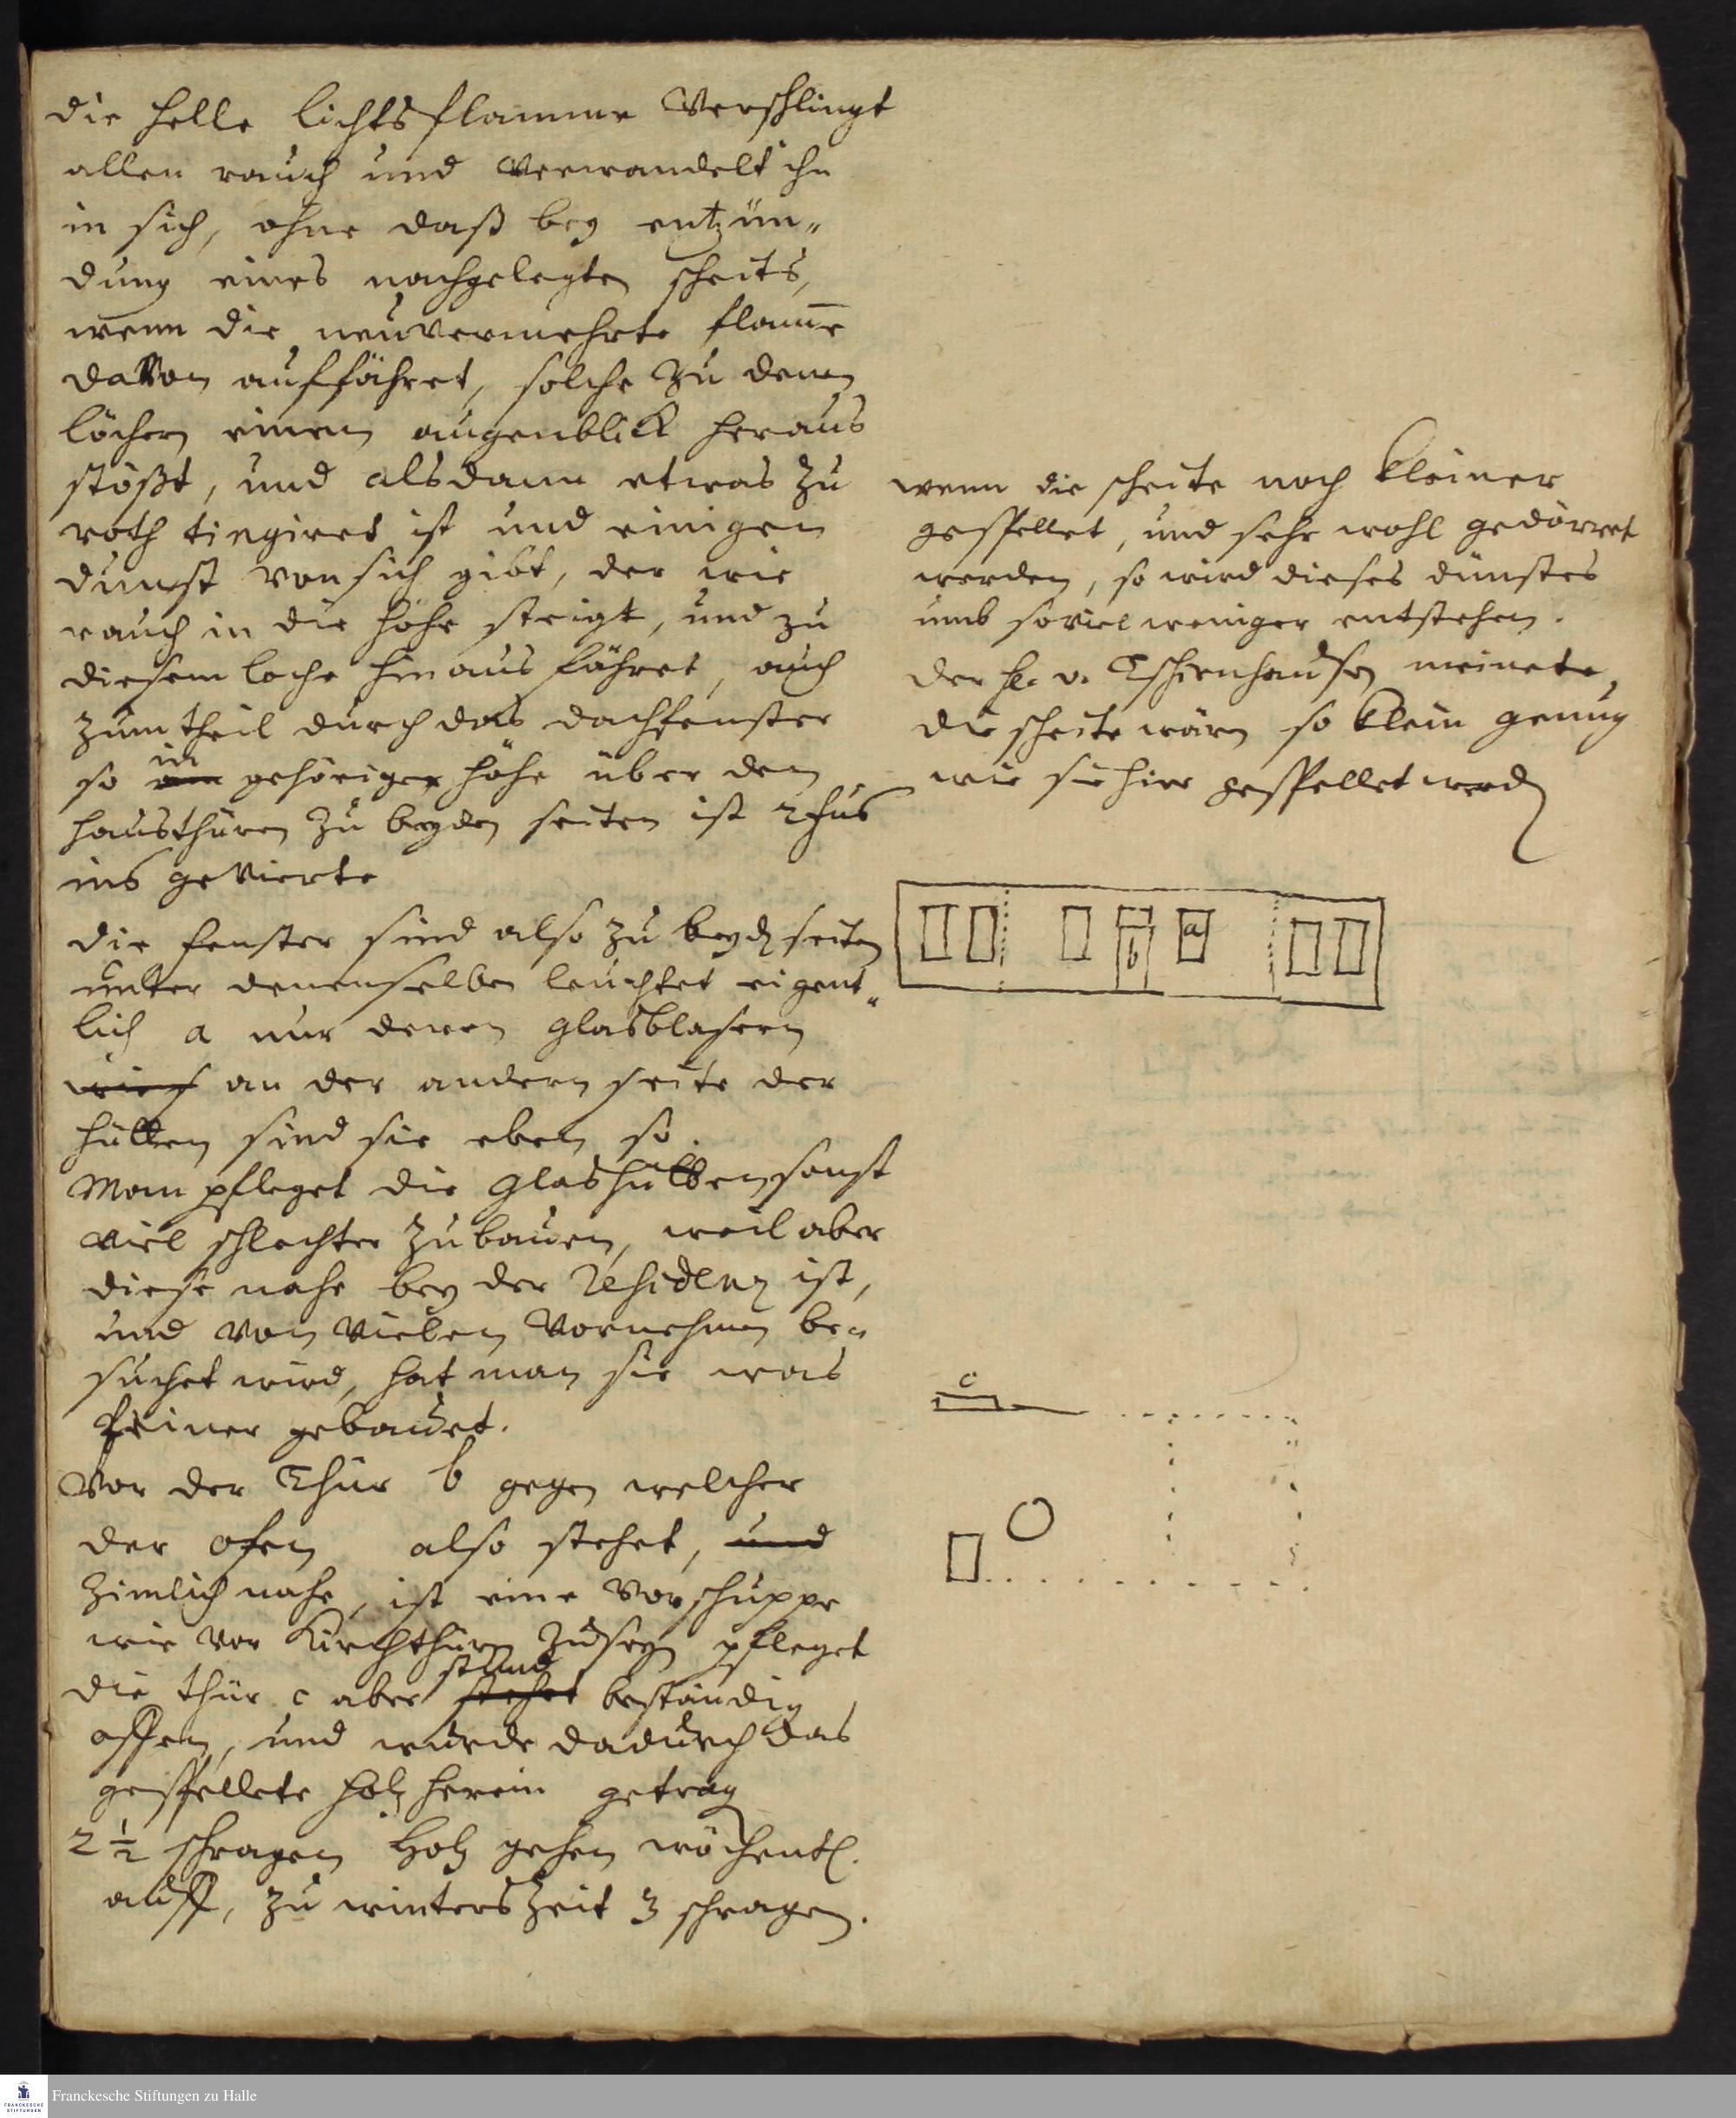 die helle lichtsflamme verschlingt
allen rauch und verwandelt ihn
in sich, ohne daß bey entzün„
dung eines nachgelegten scheits,
wenn die neuvermehrte flam̄e
davon auffähret, solche zu denen
löchern einen augenblick heraus
stößt, und alsdann etwas zu
roth tingiret ist und einigen
dunst von sich gibt, der wie
rauch in die höhe steigt, und zu
diesem loche hinaus fähret, auch
zum theil durch das dachfenster
so in gehöriger höhe über den
hausthüren zu beyden seiten ist 2 fus
ins gevierte
die fenster sind also zu beyd seiten
unter denenselben leuchtet eigent„
lich a nur denen glasblasern
an der andern seite der
hütten sind sie eben so.
Man pfleget die glashütten sonst
viel schlechter zubauen, weil aber
diese nahe bey der Residenz ist,
und von vielen Vornehmen be„
suchet wird, hat man sie was
feiner gebauet.
Vor der Thür b gegen welcher
der ofen also stehet, und
zimlich nahe, ist eine Vorschuppe
wie vor Kirchthüren zuseyn pfleget
die thür c aber stund stehet beständig
offen, und wurde dadurch das
gespellete holz herein getrag
2 1/2 schragen Holz gehen wöchentl.
auff, zu winterszeit 3 schragen.
wenn die scheite noch kleiner
gespellet, und sehr wohl gedörret
werden, so wird dieses dunstes
umb soviel weniger entstehen.
der H. v. Tschirnhausen meinete,
die scheite wären so klein genug
wie sie hier gespellet werd
a
b
c
Franckesche Stiftungen zu Halle
FRANCKESCHE
STIFTUNGEN